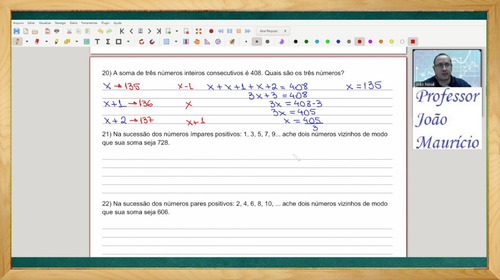 20) A soma de três números inteiros consecutivos é 408. Quais são os três números?
x → 135 x-1 x + x + 1 + x + 2 = 408 x = 135
3x + 3 = 408
x+1 → 136 x 3x = 408-3
3x = 405
x + 2 → 137 x+1 x = 405/3
21) Na sucessão dos números ímpares positivos: 1, 3, 5, 7, 9... ache dois números vizinhos de modo
que sua soma seja 728.
22) Na sucessão dos números pares positivos: 2, 4, 6, 8, 10, ... ache dois números vizinhos de modo
que sua soma seja 606.
Professor
João
Maurício